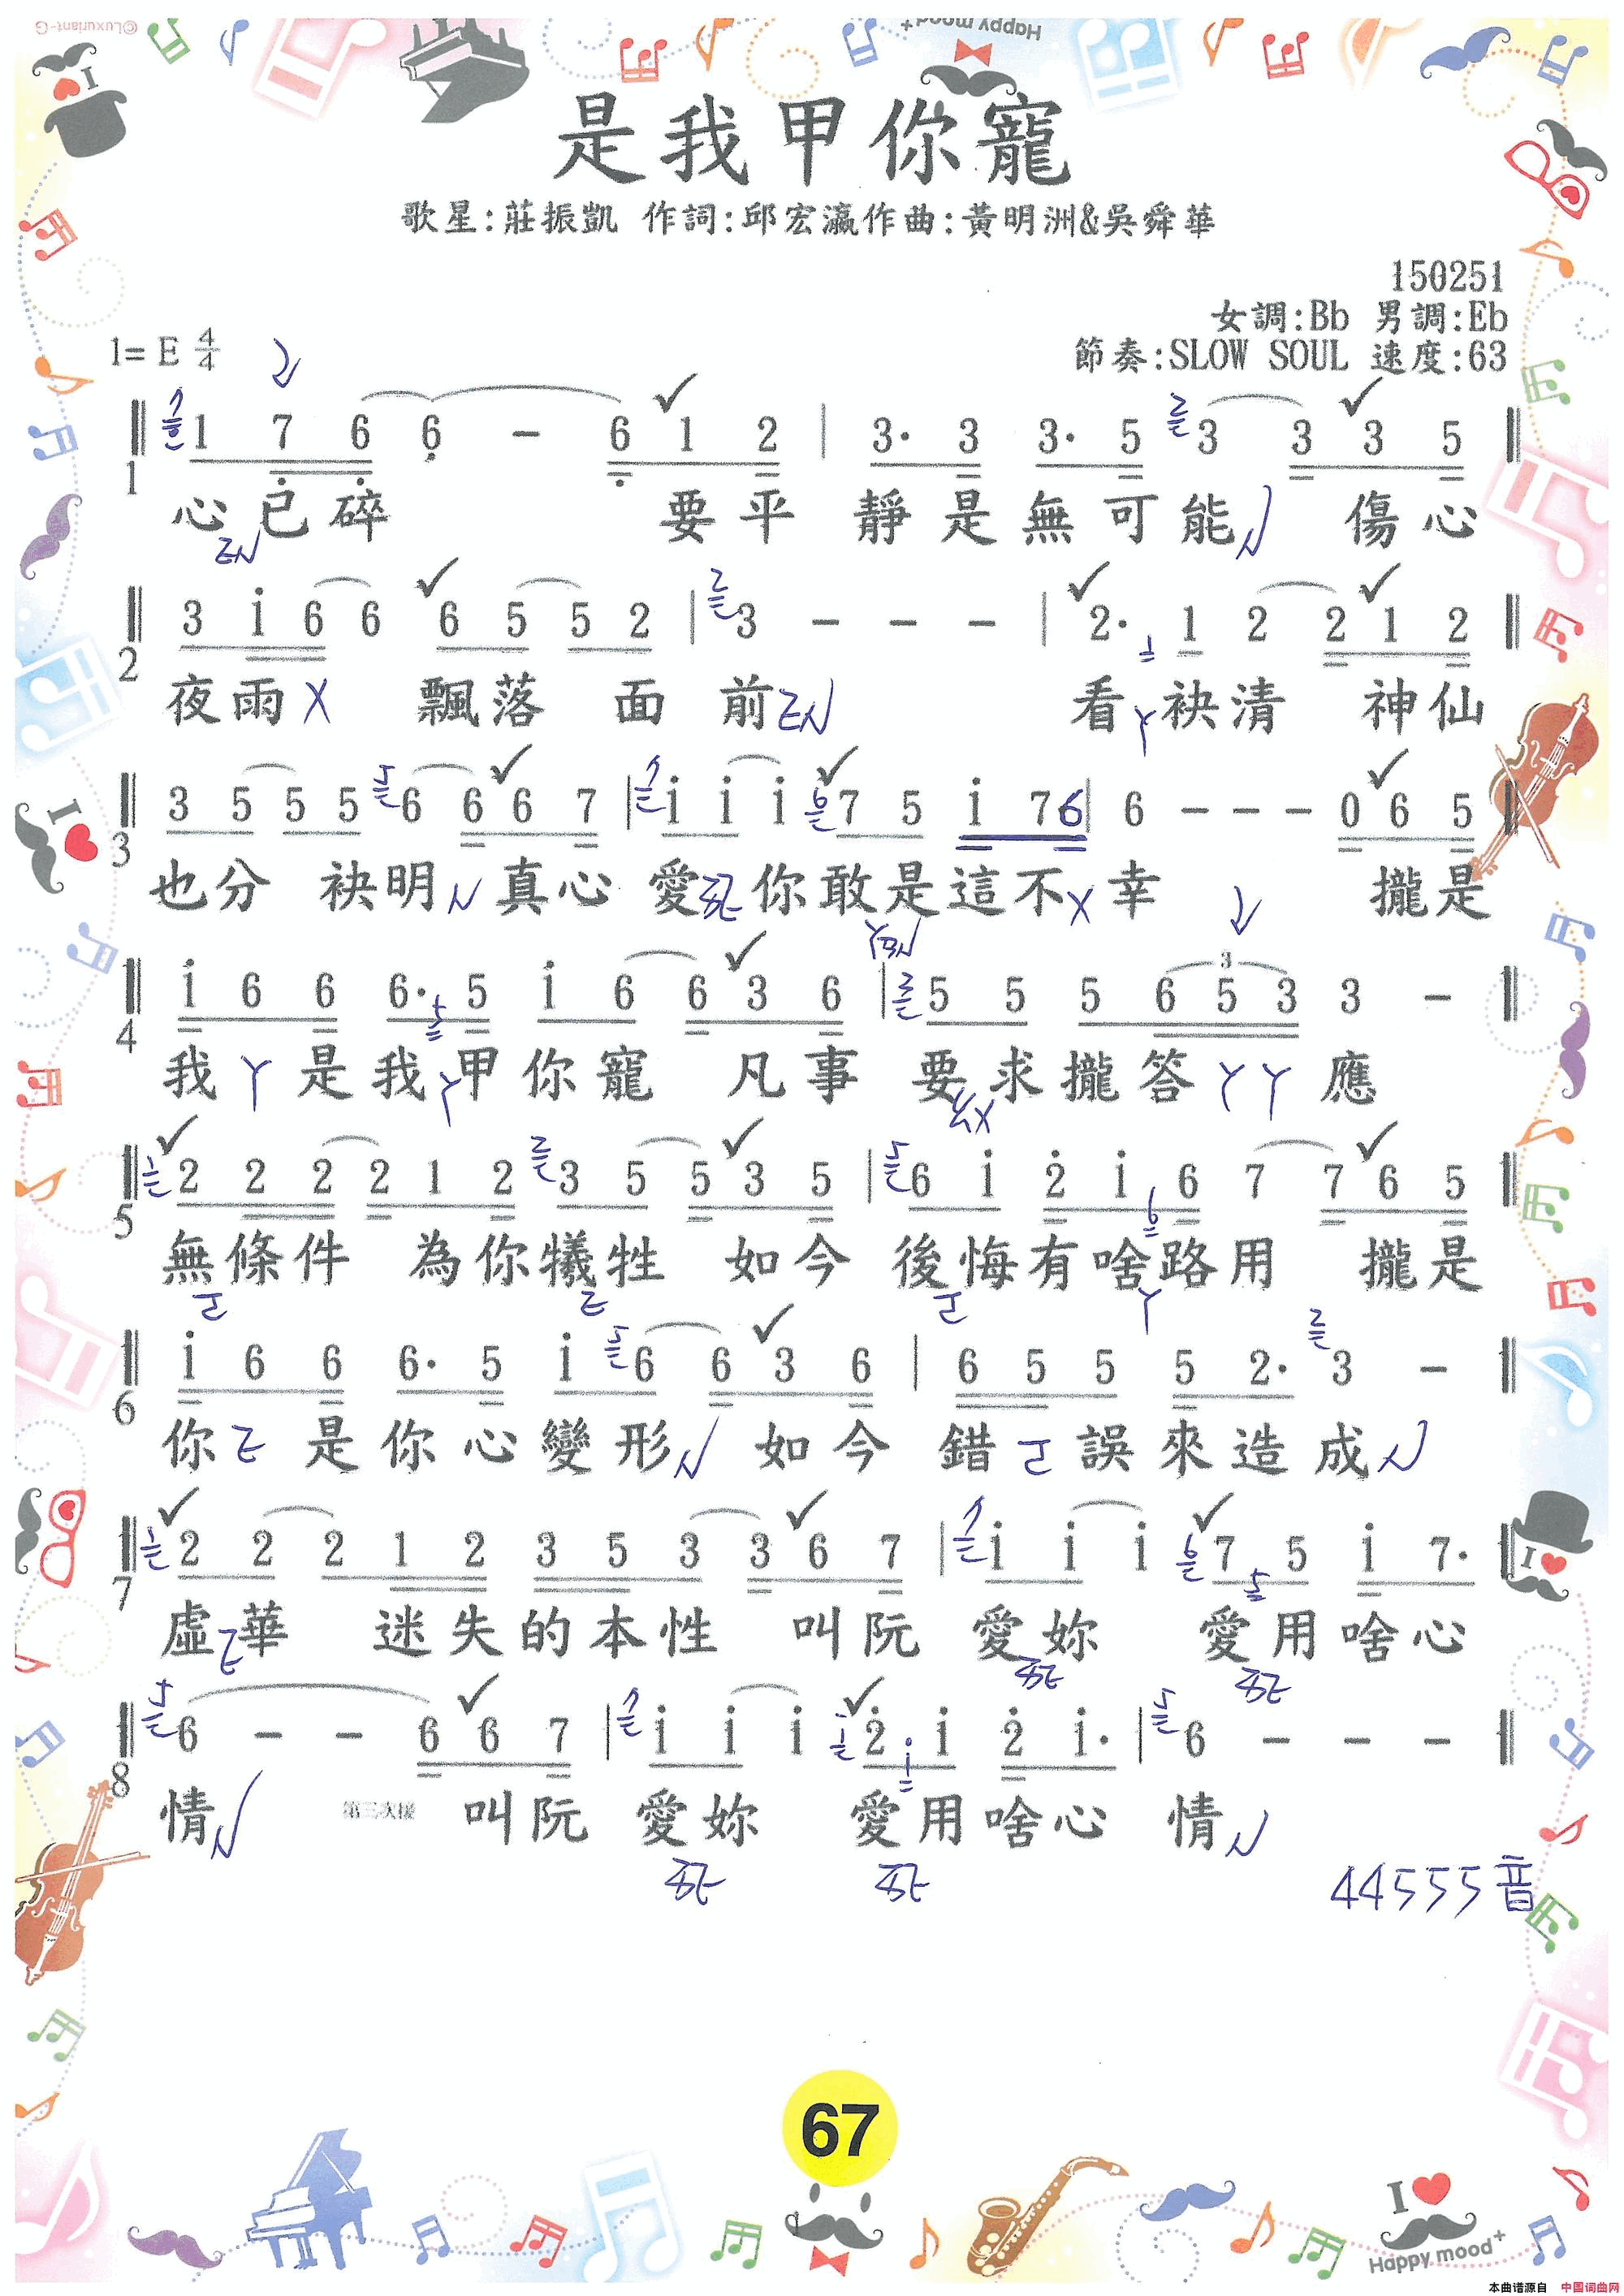 ©Luxuriant-G
Happy mood+
I
是我甲你寵
歌星:莊振凱 作詞:邱宏瀛作曲:黃明洲&吳舜華
150251
女調:Bb 男調:Eb
1= E 4/4
節奏:SLOW SOUL 速度:63
1 7 6 6 - 6 1 2 | 3· 3 3· 5 3 3 3 5
1
心已碎 要平 靜是無可能 傷心
3 i 6 6 6 5 5 2 | 3 - - - | 2· 1 2 2 1 2
2
夜雨 飄落 面 前 看袂清 神仙
3 5 5 5 6 6 6 7 | i i i 7 5 i 7 6 | 6 - - - 0 6 5
3
也分 袂明 真心 愛 你敢是這不 幸 攏是
i 6 6 6· 5 i 6 6 3 6 | 5 5 5 6 5 3 3 -
4
我 是我 甲你寵 凡事 要 求攏答 應
2 2 2 2 1 2 3 5 5 3 5 | 6 i 2 i 6 7 7 6 5
5
無條件 為你犧牲 如今 後悔有啥路用 攏是
i 6 6 6· 5 i 6 6 3 6 | 6 5 5 5 2· 3 -
6
你 是你心變形 如今 錯 誤來造成
2 2 2 1 2 3 5 3 3 6 7 | i i i 7 5 i 7·
7
虛 華 迷失的本性 叫阮 愛妳 愛用啥心
6 - - 6 6 7 | i i i 2 i 2 i· | 6 - - -
8
情 第三次接 叫阮 愛妳 愛用啥心 情
44555音
67
I
Happy mood+
本曲谱源自 中国词曲网